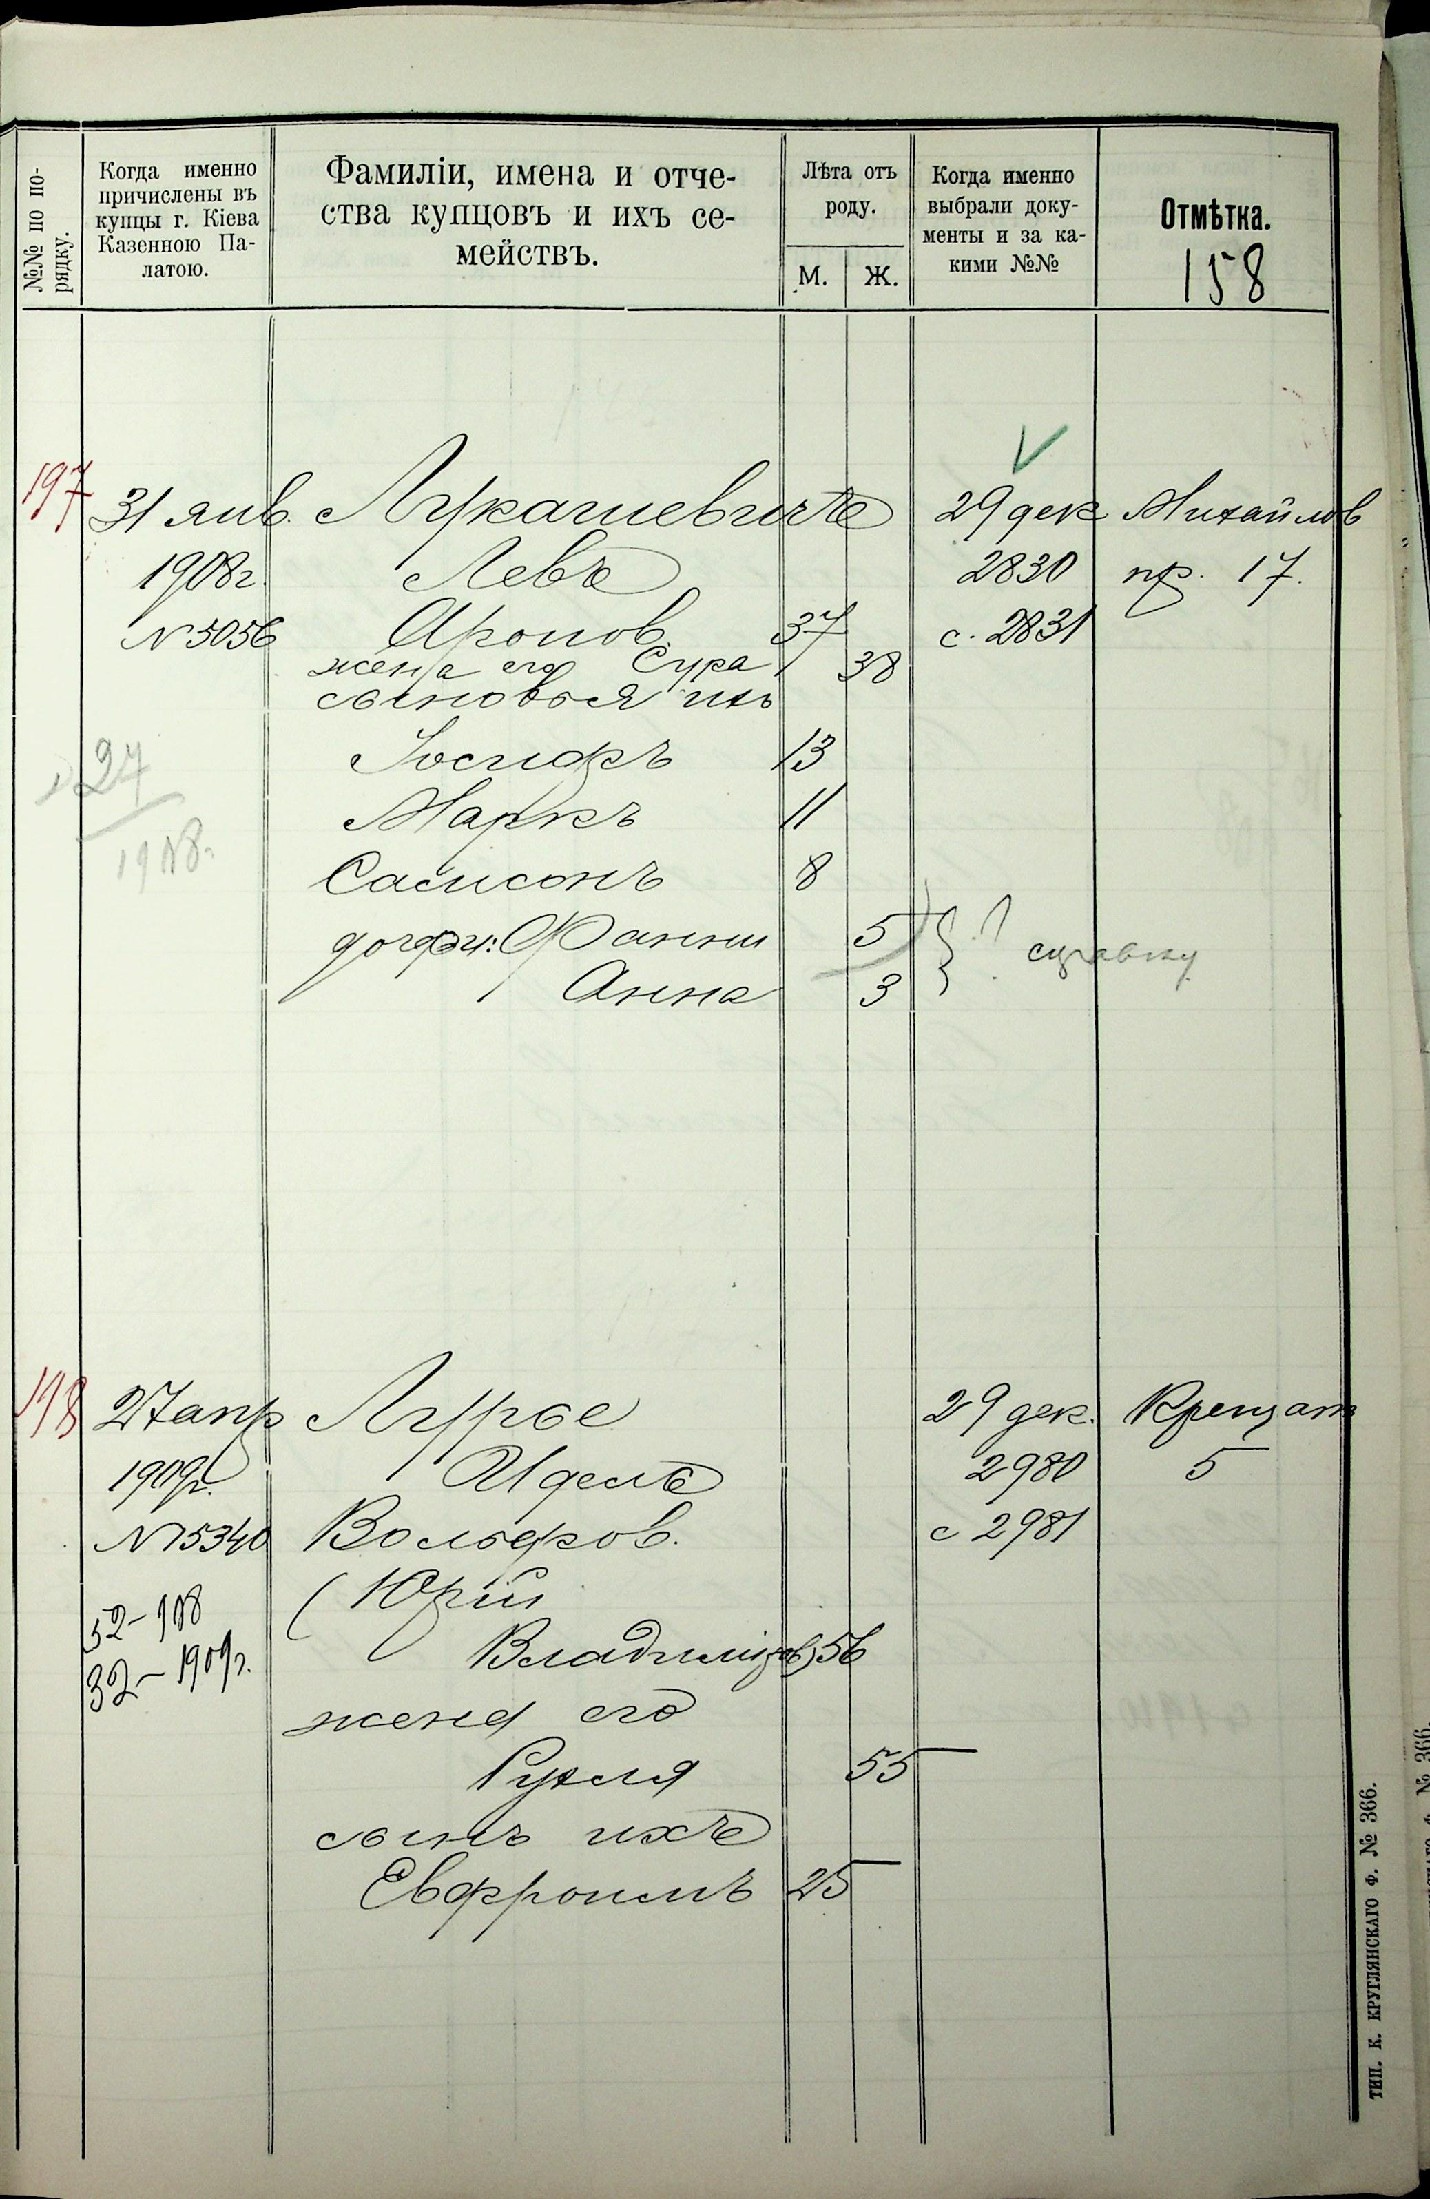 №№ по по-
рядку.
Когда именно
причислены въ
купцы г. Кіева
Казенною Па-
латою.
Фамиліи, имена и отче-
ства купцовъ и ихъ се-
мействъ.
Лѣта отъ
роду.
М. Ж.
Когда именно
выбрали доку-
менты и за ка-
кими №№
Отмѣтка.
158
197 31 янв. Лукашевичъ 29 дек Михайлов
1908г. Левъ 2830 пр. 17.
№ 5056 Аронов. 37 с. 2831
жена его Сура 38
сыновья ихъ
Іосифъ 13
27
Маркъ 11
1908г.
Самсонъ 8
дочери: Фанни 5 ? справку
Анна 3
198 27 апр Лурье 29 дек. Крещат
1909г. Идель 2980 5
№ 5340 Вольфов. с 2981
(Юрій
52-908
Владиміров) 56
32-1909г.
жена его
Рухля 55
сынъ ихъ
Евфроимъ 25
ТИП. К. КРУГЛЯНСКАГО Ф. № 366.
№ 366.